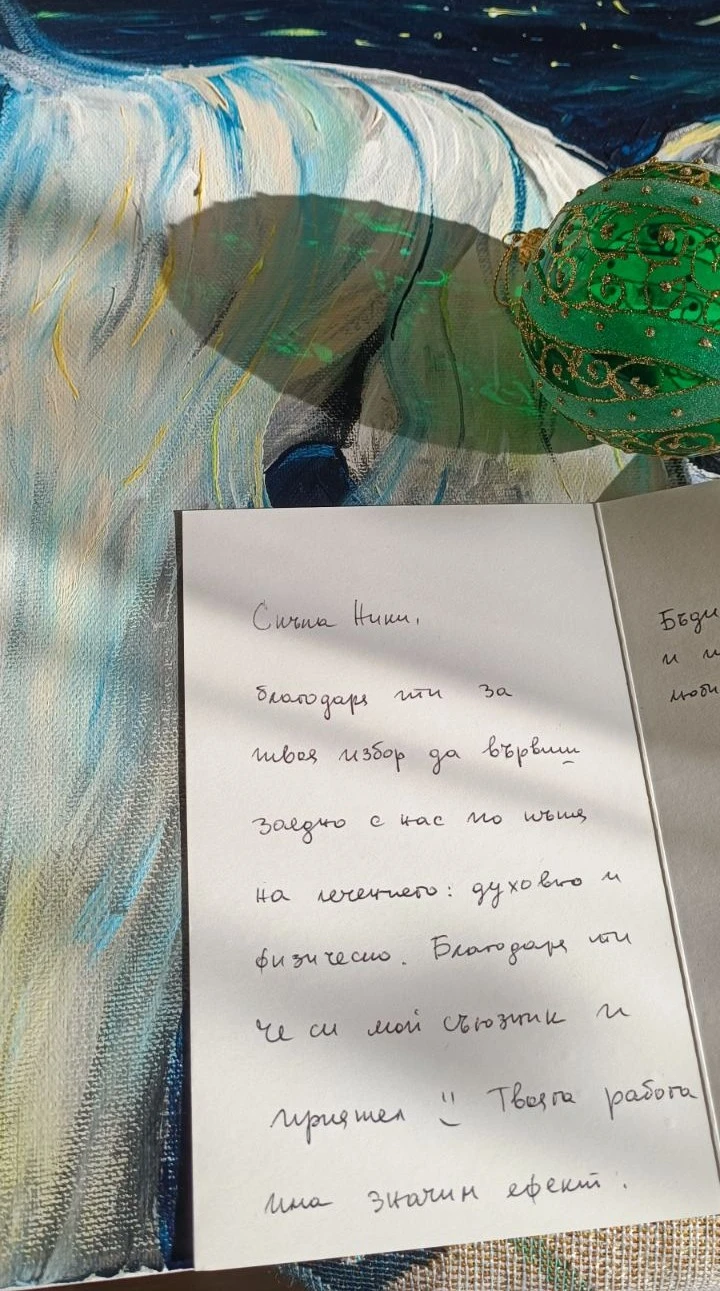 Силна Ники,
благодаря ти за
твоя избор да вървиш
заедно с нас по пътя
на лечението: духовно и
физическо. Благодаря ти
че си мой съюзник и
приятел Твоята работа
има значим ефект.
Бъди
и